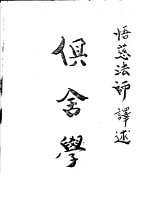 悟慈法師譯述
俱舍學